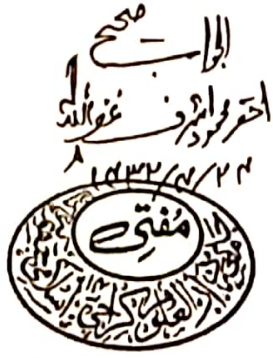 الجواب صحیح
احقر محمود اشرف غفر اللہ لہ
۲۴/۷/۱۴۳۲
مفتی
دارالعلوم کراچی